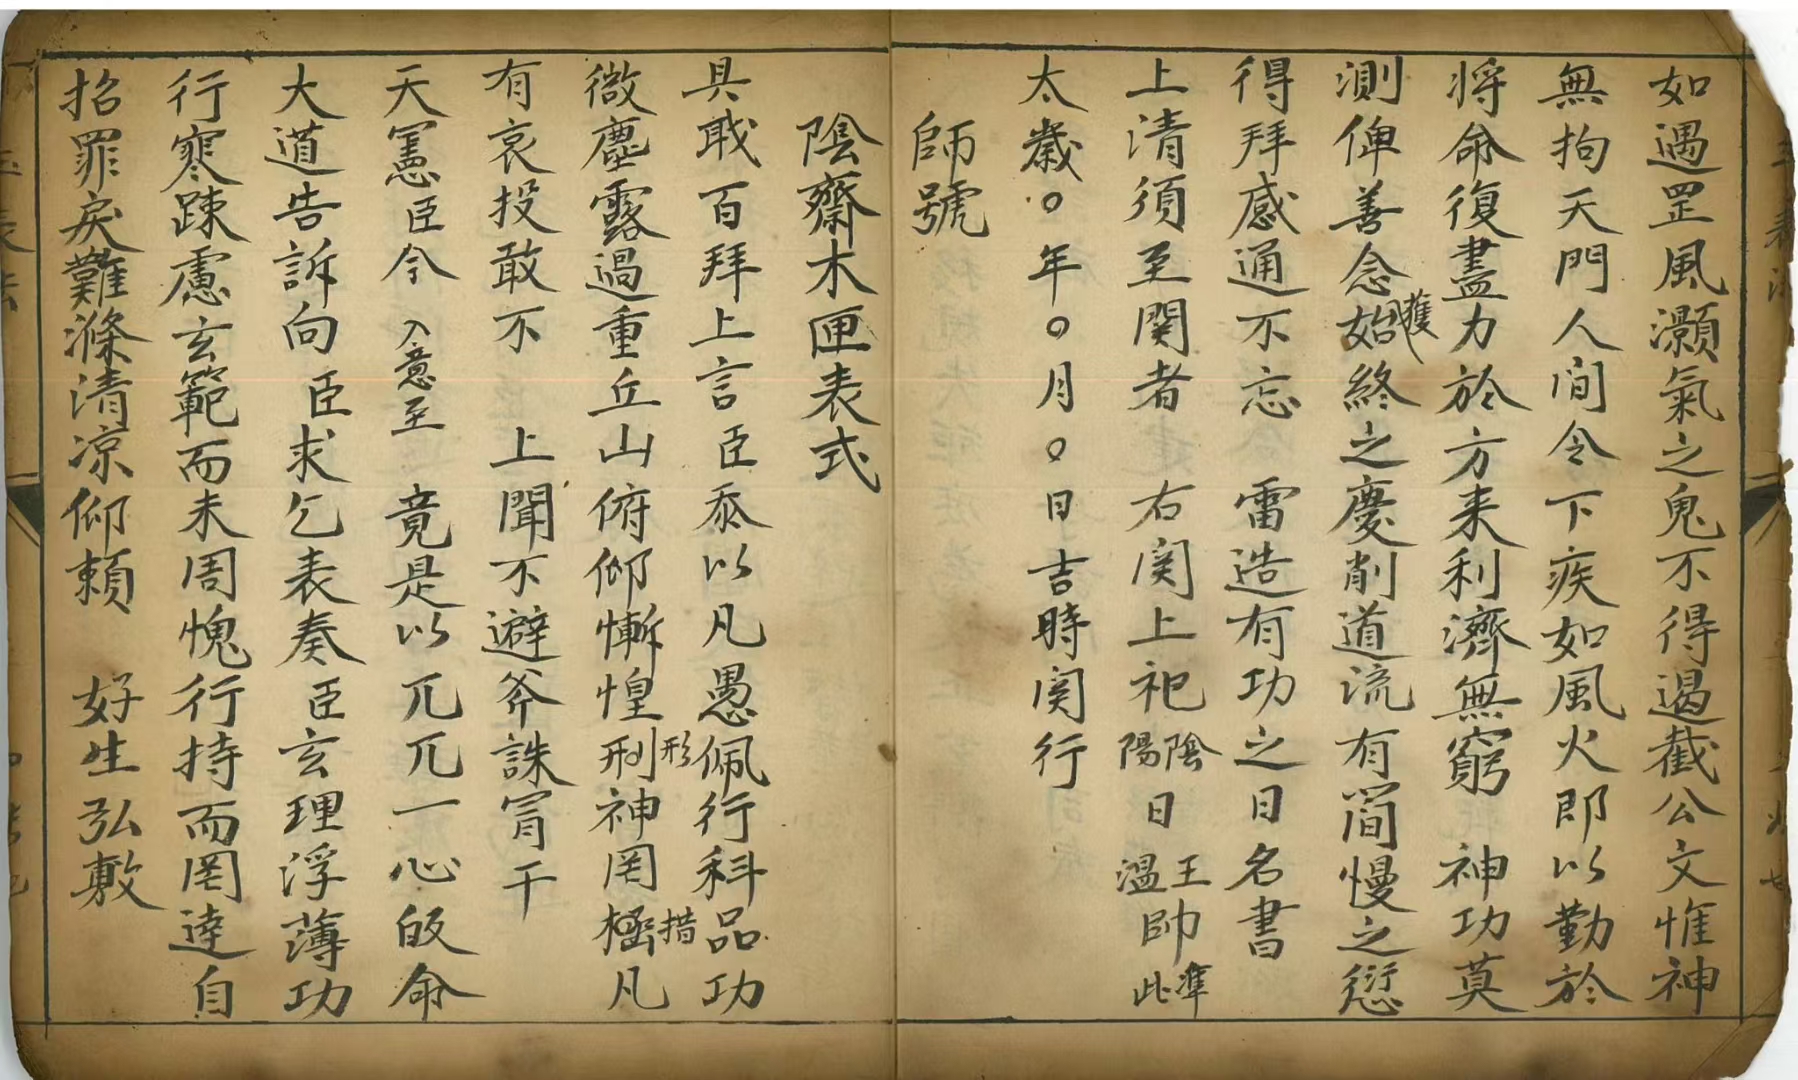 如遇罡風灝氣之鬼不得遏截公文惟神
無拘天門人間令下疾如風火郎以勤於
將命復盡力於方来利濟無窮神功莫
測俾善念始獲終之慶削道流有簡慢之愆
得拜感通不忘 雷造有功之日名書
上清須至関者 右関上祀陰陽日温王帥準此
太歲○年○月○日吉時関行
師號
陰齋木匣表式
具戢百拜上言臣忝以凡愚佩行科品功
微塵露過重丘山俯仰慚惶刑形神罔極措凡
有哀投敢不 上聞不避斧誅冐干
天憲臣今 入意至 竟是以兀兀一心皈命
大道告訴向臣求乞表奏臣玄理浮薄功
行寒踈慮玄範而未周愧行持而罔逹自
招罪戾難滌清凉仰頼 好生弘敷